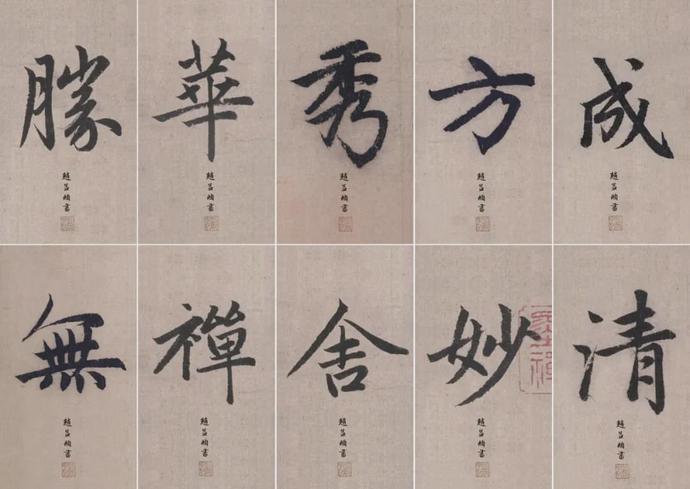 勝 華 秀 方 成
趙孟頫書 趙孟頫書 趙孟頫書 趙孟頫書 趙孟頫書
無 禪 舍 妙 清
趙孟頫書 趙孟頫書 趙孟頫書 趙孟頫書 趙孟頫書